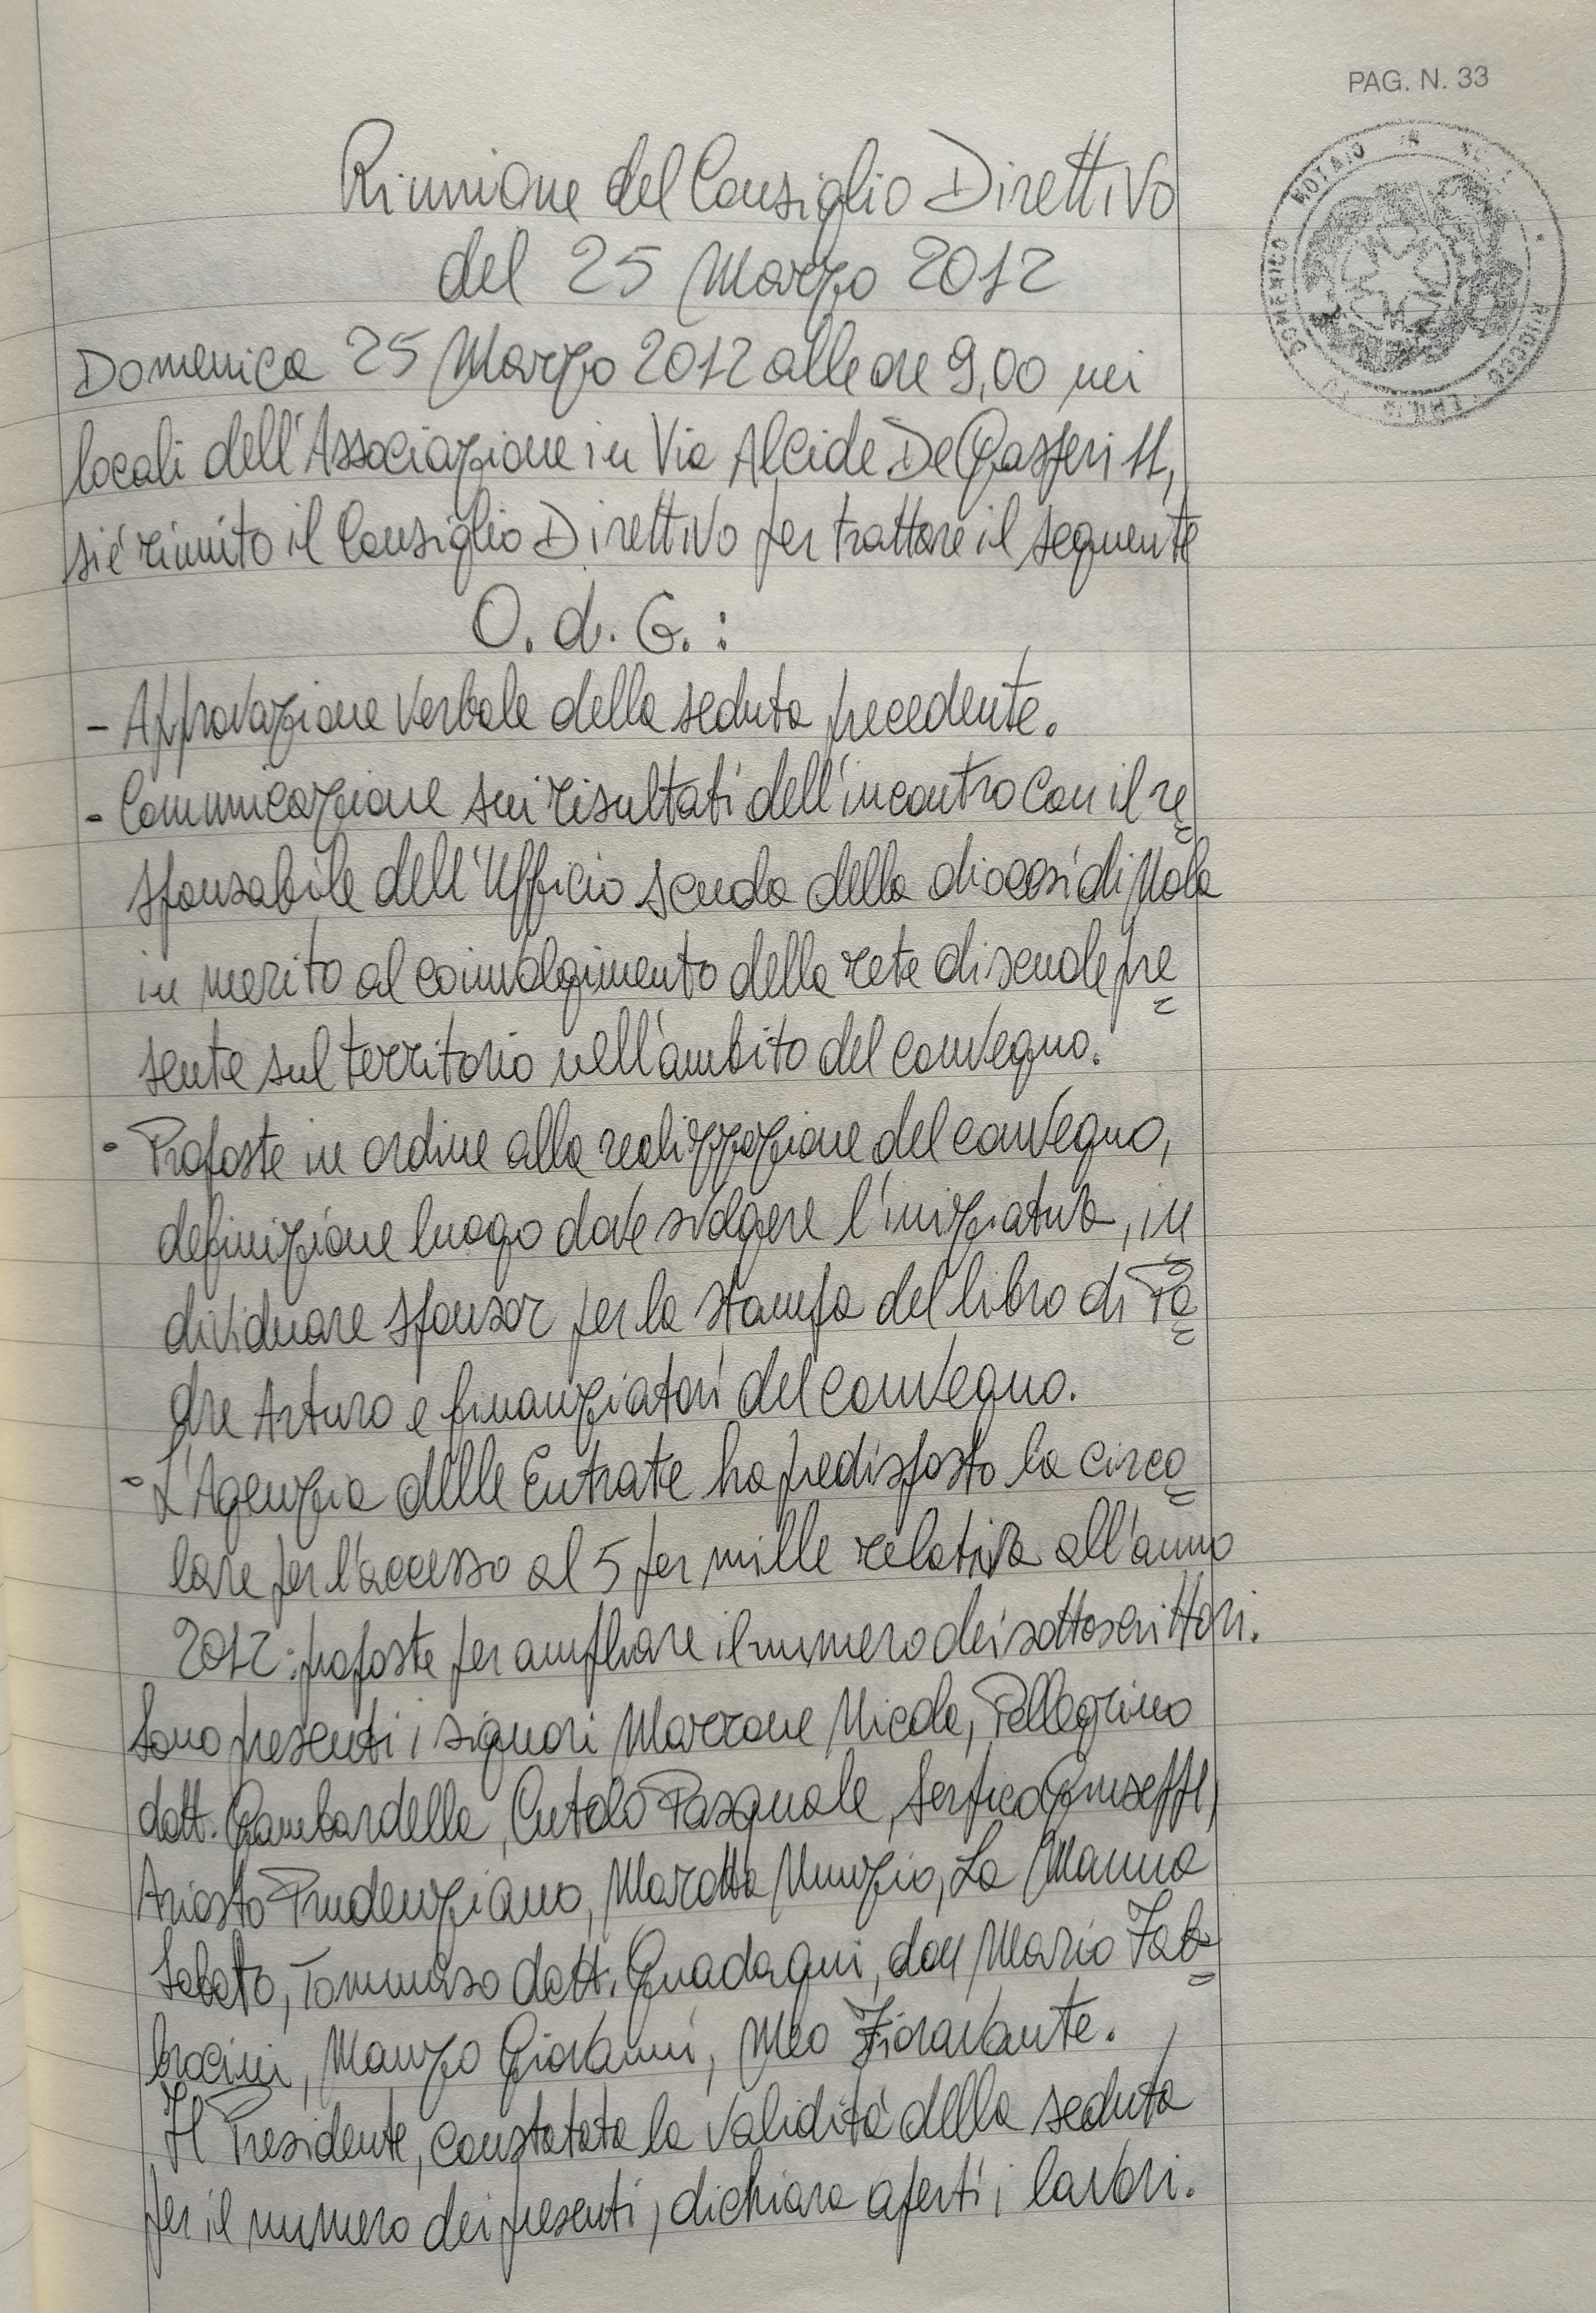 PAG. N. 33
NOTAIO IN
DOMENICO
Riunione del Consiglio Direttivo
del 25 Marzo 2012
Domenica 25 Marzo 2012 alle ore 9,00 nei
locali dell'Associazione in Via Alcide De Gasperi 11,
si è riunito il Consiglio Direttivo per trattare il seguente
O. d. G. :
- Approvazione verbale della seduta precedente.
- Comunicazione sui risultati dell'incontro con il re=
sponsabile dell'Ufficio scuola della diocesi di Nola
in merito al coinvolgimento della rete di scuole pre=
sente sul territorio nell'ambito del convegno.
- Proposte in ordine alla realizzazione del convegno,
definizione luogo dove svolgere l'iniziativa, in=
dividuare sponsor per la stampa del libro di Pa=
dre Arturo e finanziatori del convegno.
- L'Agenzia delle Entrate ha predisposto la circo=
lare per l'accesso al 5 per mille relativa all'anno
2012: proposte per ampliare il numero dei sottoscrittori.
Sono presenti i signori Marrone Nicola, Pellegrino
dott. Gambardella, Cutolo Pasquale, Serpico Giuseppe,
Ariosto Prudenziano, Marotta Nunzio, La Manna
Sabato, Tommaso dott. Guadagni, don Mario Fab=
brocini, Manzo Giovanni, Meo Fioravante.
Il Presidente, constatata la validità della seduta
per il numero dei presenti, dichiara aperti i lavori.